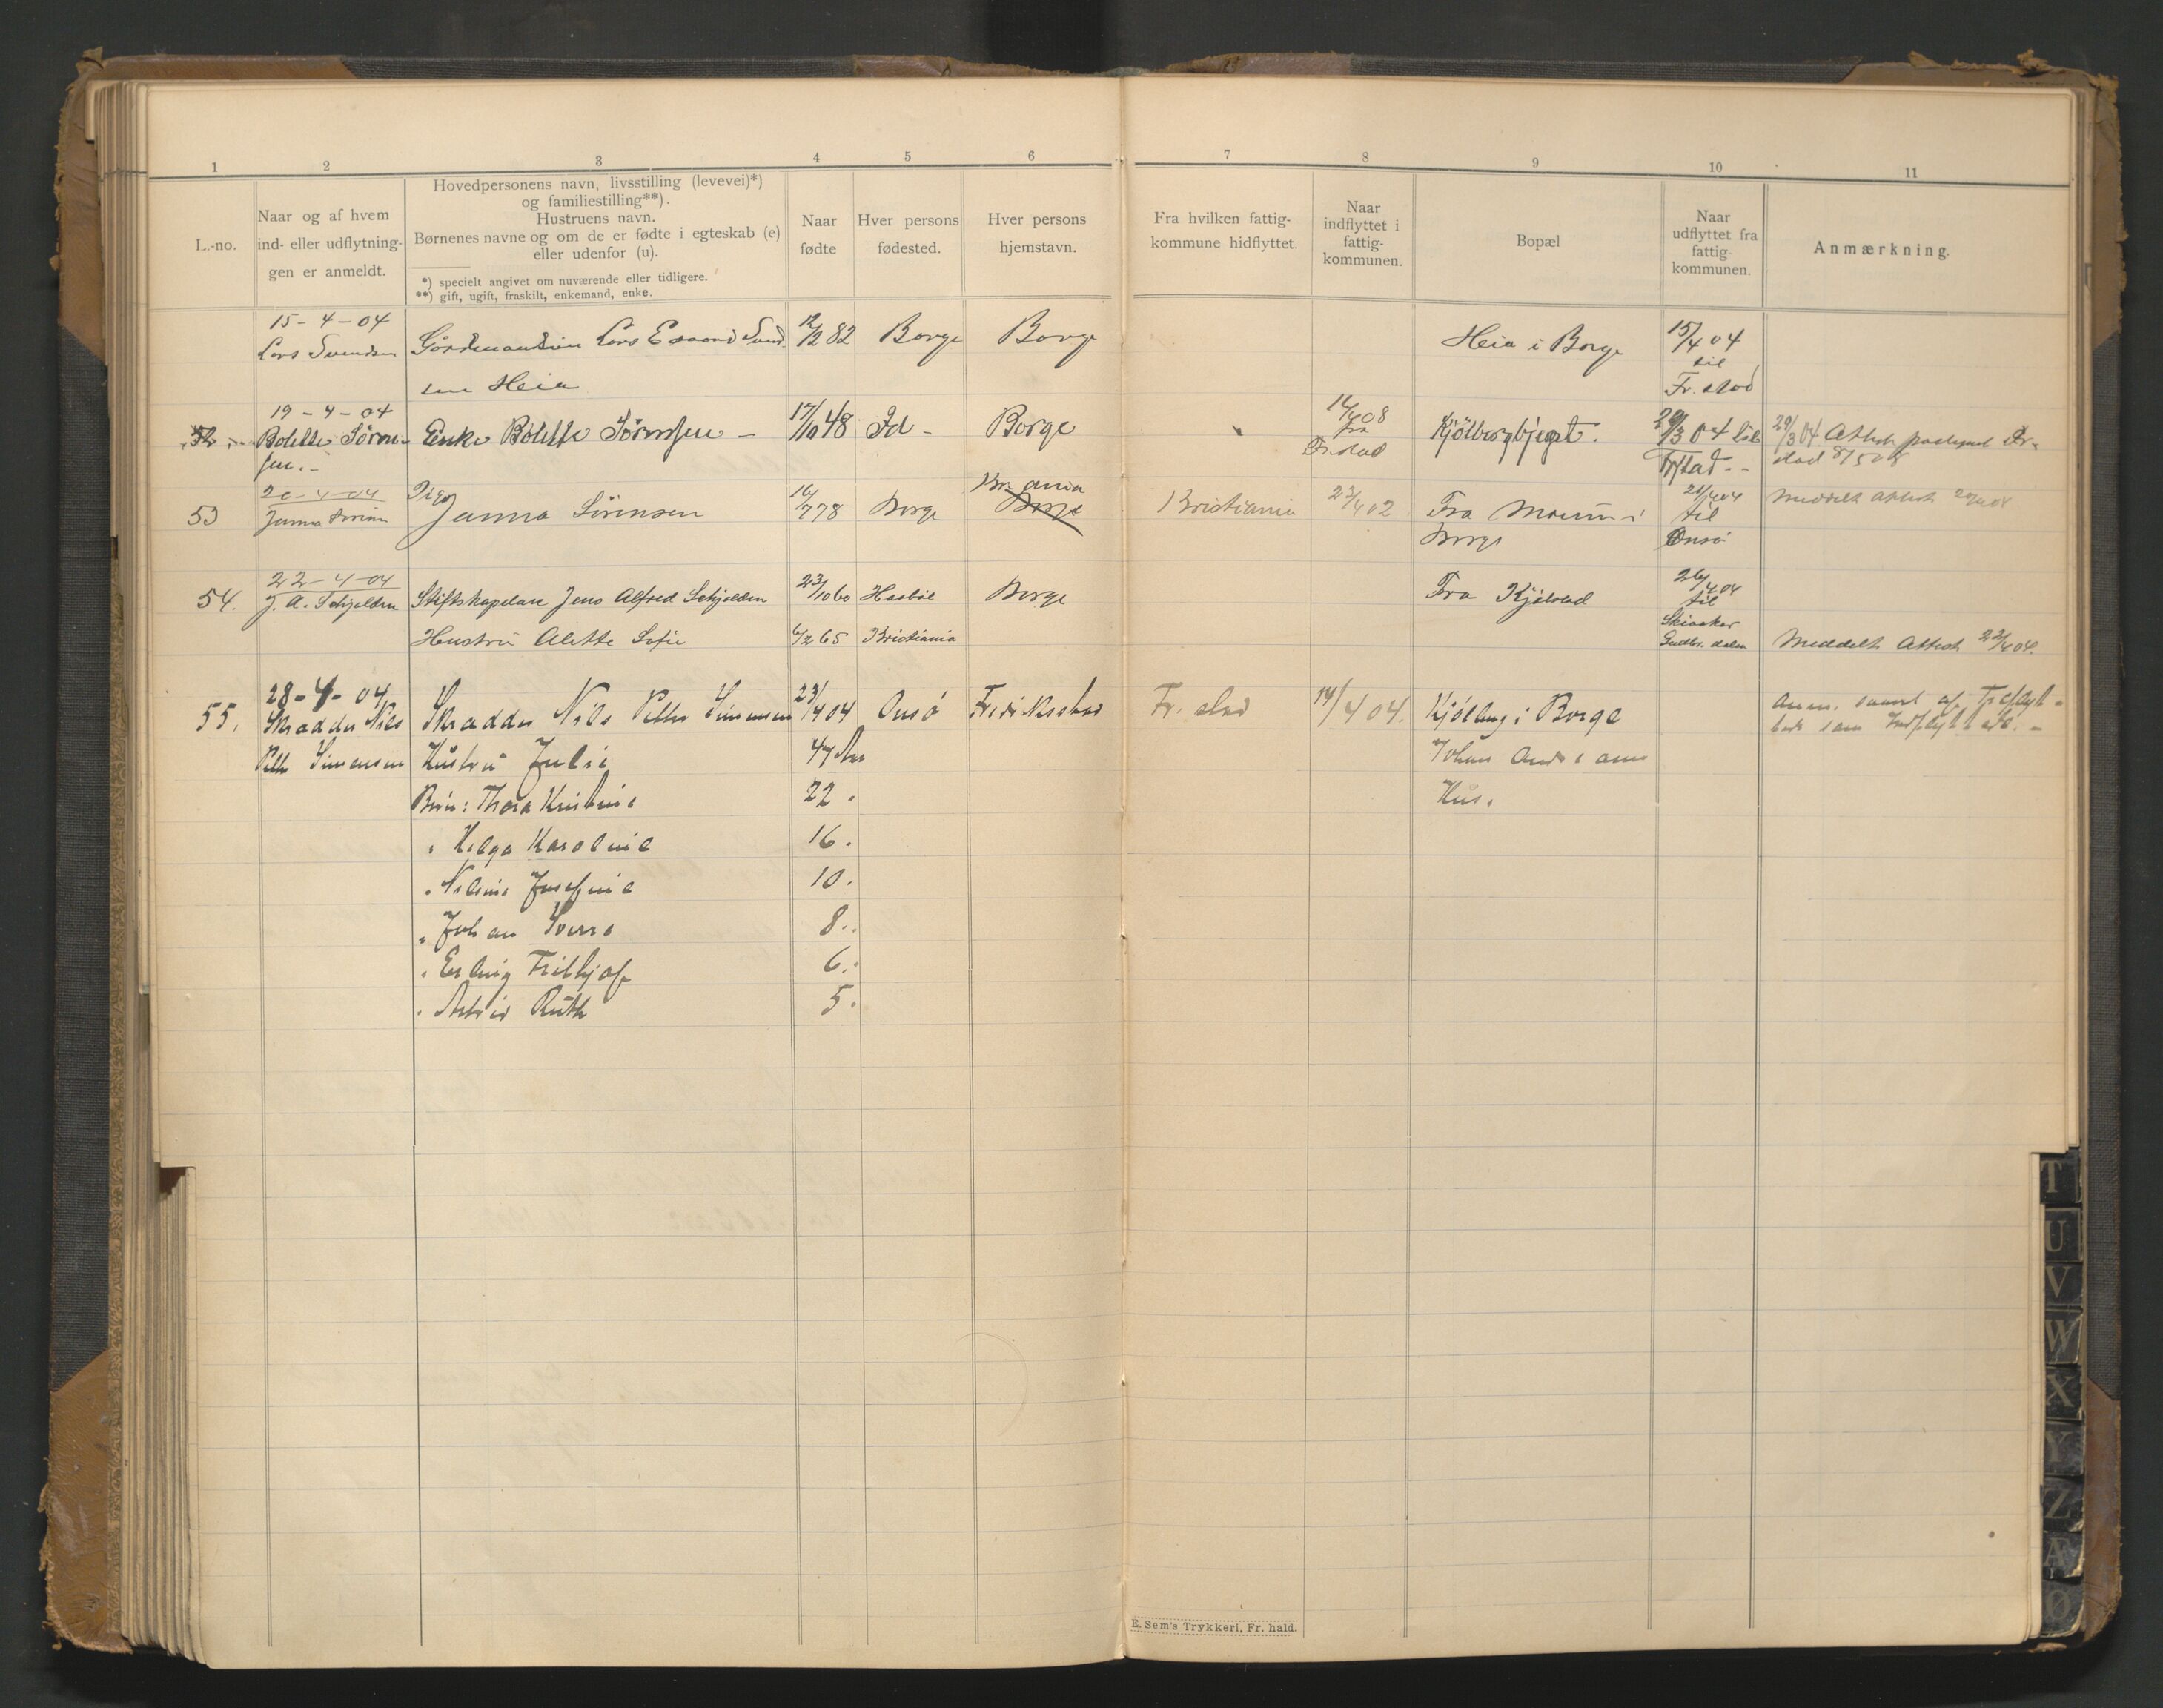 1 2 3 4 5 6 7 8 9 10 11
L.-no.
Naar og af hvem
ind- eller udflytnin-
gen er anmeldt.
Hovedpersonens navn, livsstilling (levevei)*)
og familiestilling**).
Hustruens navn.
Børnenes navne og om de er fødte i egteskab (e)
eller udenfor (u).
*) specielt angivet om nuværende eller tidligere.
**) gift, ugift, fraskilt, enkemand, enke.
Naar
fødte
Hver persons
fødested.
Hver persons
hjemstavn.
Fra hvilken fattig-
kommune hidflyttet.
Naar
indflyttet i
fattig-
kommunen.
Bopæl
Naar
udflyttet fra
fattig-
kommunen.
Anmærkning.
15-4-04
Lars Svendsen
Lars
sen Heia
12/12 82
Borge
Borge
Heia i Borge
15/4 04
til
Fr. stad
52
19-4-04
Bolette Sørn-
sen.-
Enke Bolette Sørensen -
17/10 48
Id -
Borge
fra
Fr. stad
29/3 04 til
Fr.stad. -
29/3 04 Attest
stad
53
20-4-04
Janna
Pige
Janna Sörensen
16/7 78
Borge
Kr.ania
Borge
Kristiania
23/4 02
Fra
Borge
21/4 04
til
Onsö
Meddelt Attest
54.
22-4-04
J. A. Schjelden
Stiftskapelan Jens Alfred Schjelden
23/10 60
Borge
Fra Kjölstad
26/4 04
til
Skiaaker
Gudbr. dalen
Hustru Alette Sofie
6/2 65
Kristiania
Meddelt Attest 22/4 04.
55.
28-4-04
Skrædder Nils
Petter Simensen
Skrædder Nils Petter Simensen
23/4 04
Onsö
Frederiksstad
Fr. stad
14/4 04.
Kjölberg i Borge
Hustru Julie
47 Aar
Johan
Hus.
Börn: Thora Kristine
22 .
" Helga Karoline
16 .
" Nilsine Josefine
10 .
" Johan Sverre
8 .
" Erling Frithjof
6 .
" Astrid Ruth
5 .
E. Sem's Trykkeri, Fr. hald.
T
U
V
W
X
Y
Z
Æ
Ø